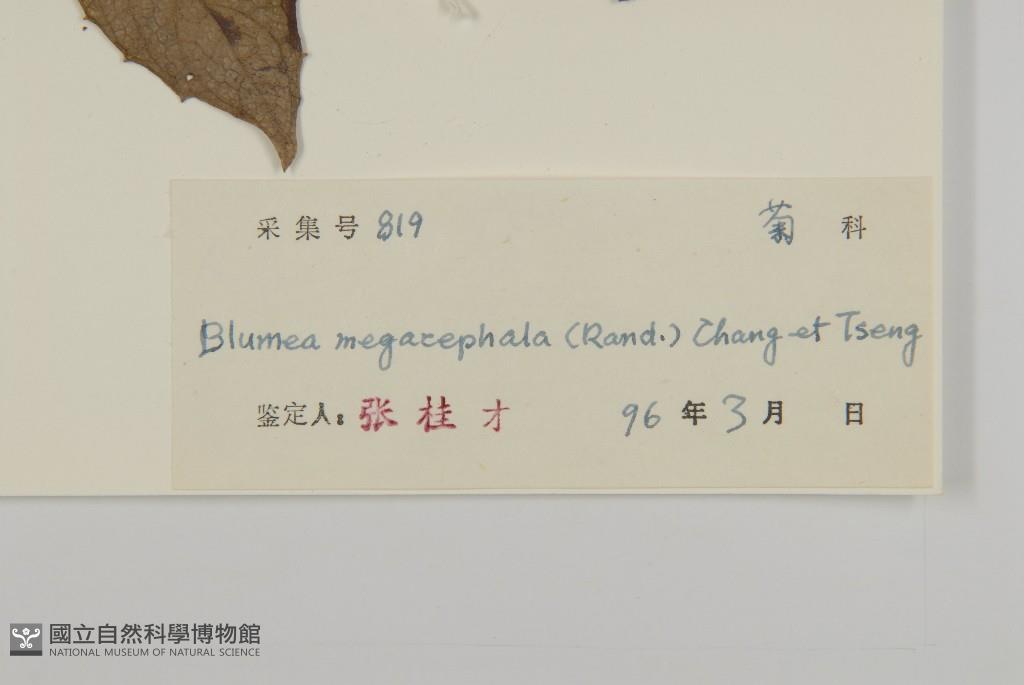 采集号 819 菊 科
Blumea megacephala (Rand.) Chang et Tseng
鉴定人: 张桂才 96 年 3 月 日
國立自然科學博物館
NATIONAL MUSEUM OF NATURAL SCIENCE